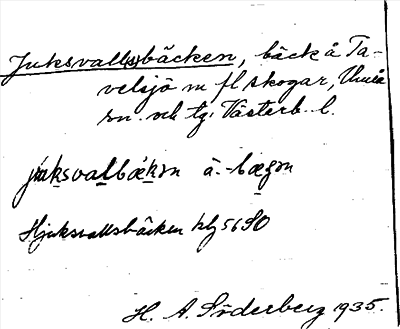 Juksvall(s)bäcken, bäck å Ta-
velsjö m fl skogar, Umeå
sn. och tg. Västerb. l.
juksvalbäkən ä. -bægən
Hjuksvallsbäcken hlg 56 SO
H. A. Söderberg 1935.